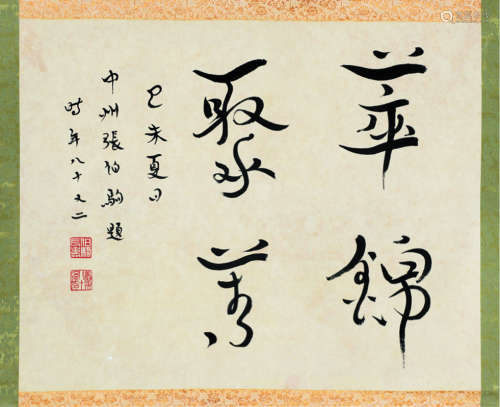 萃錦
聚芳
己未夏日
中州張伯駒題
時年八十又二